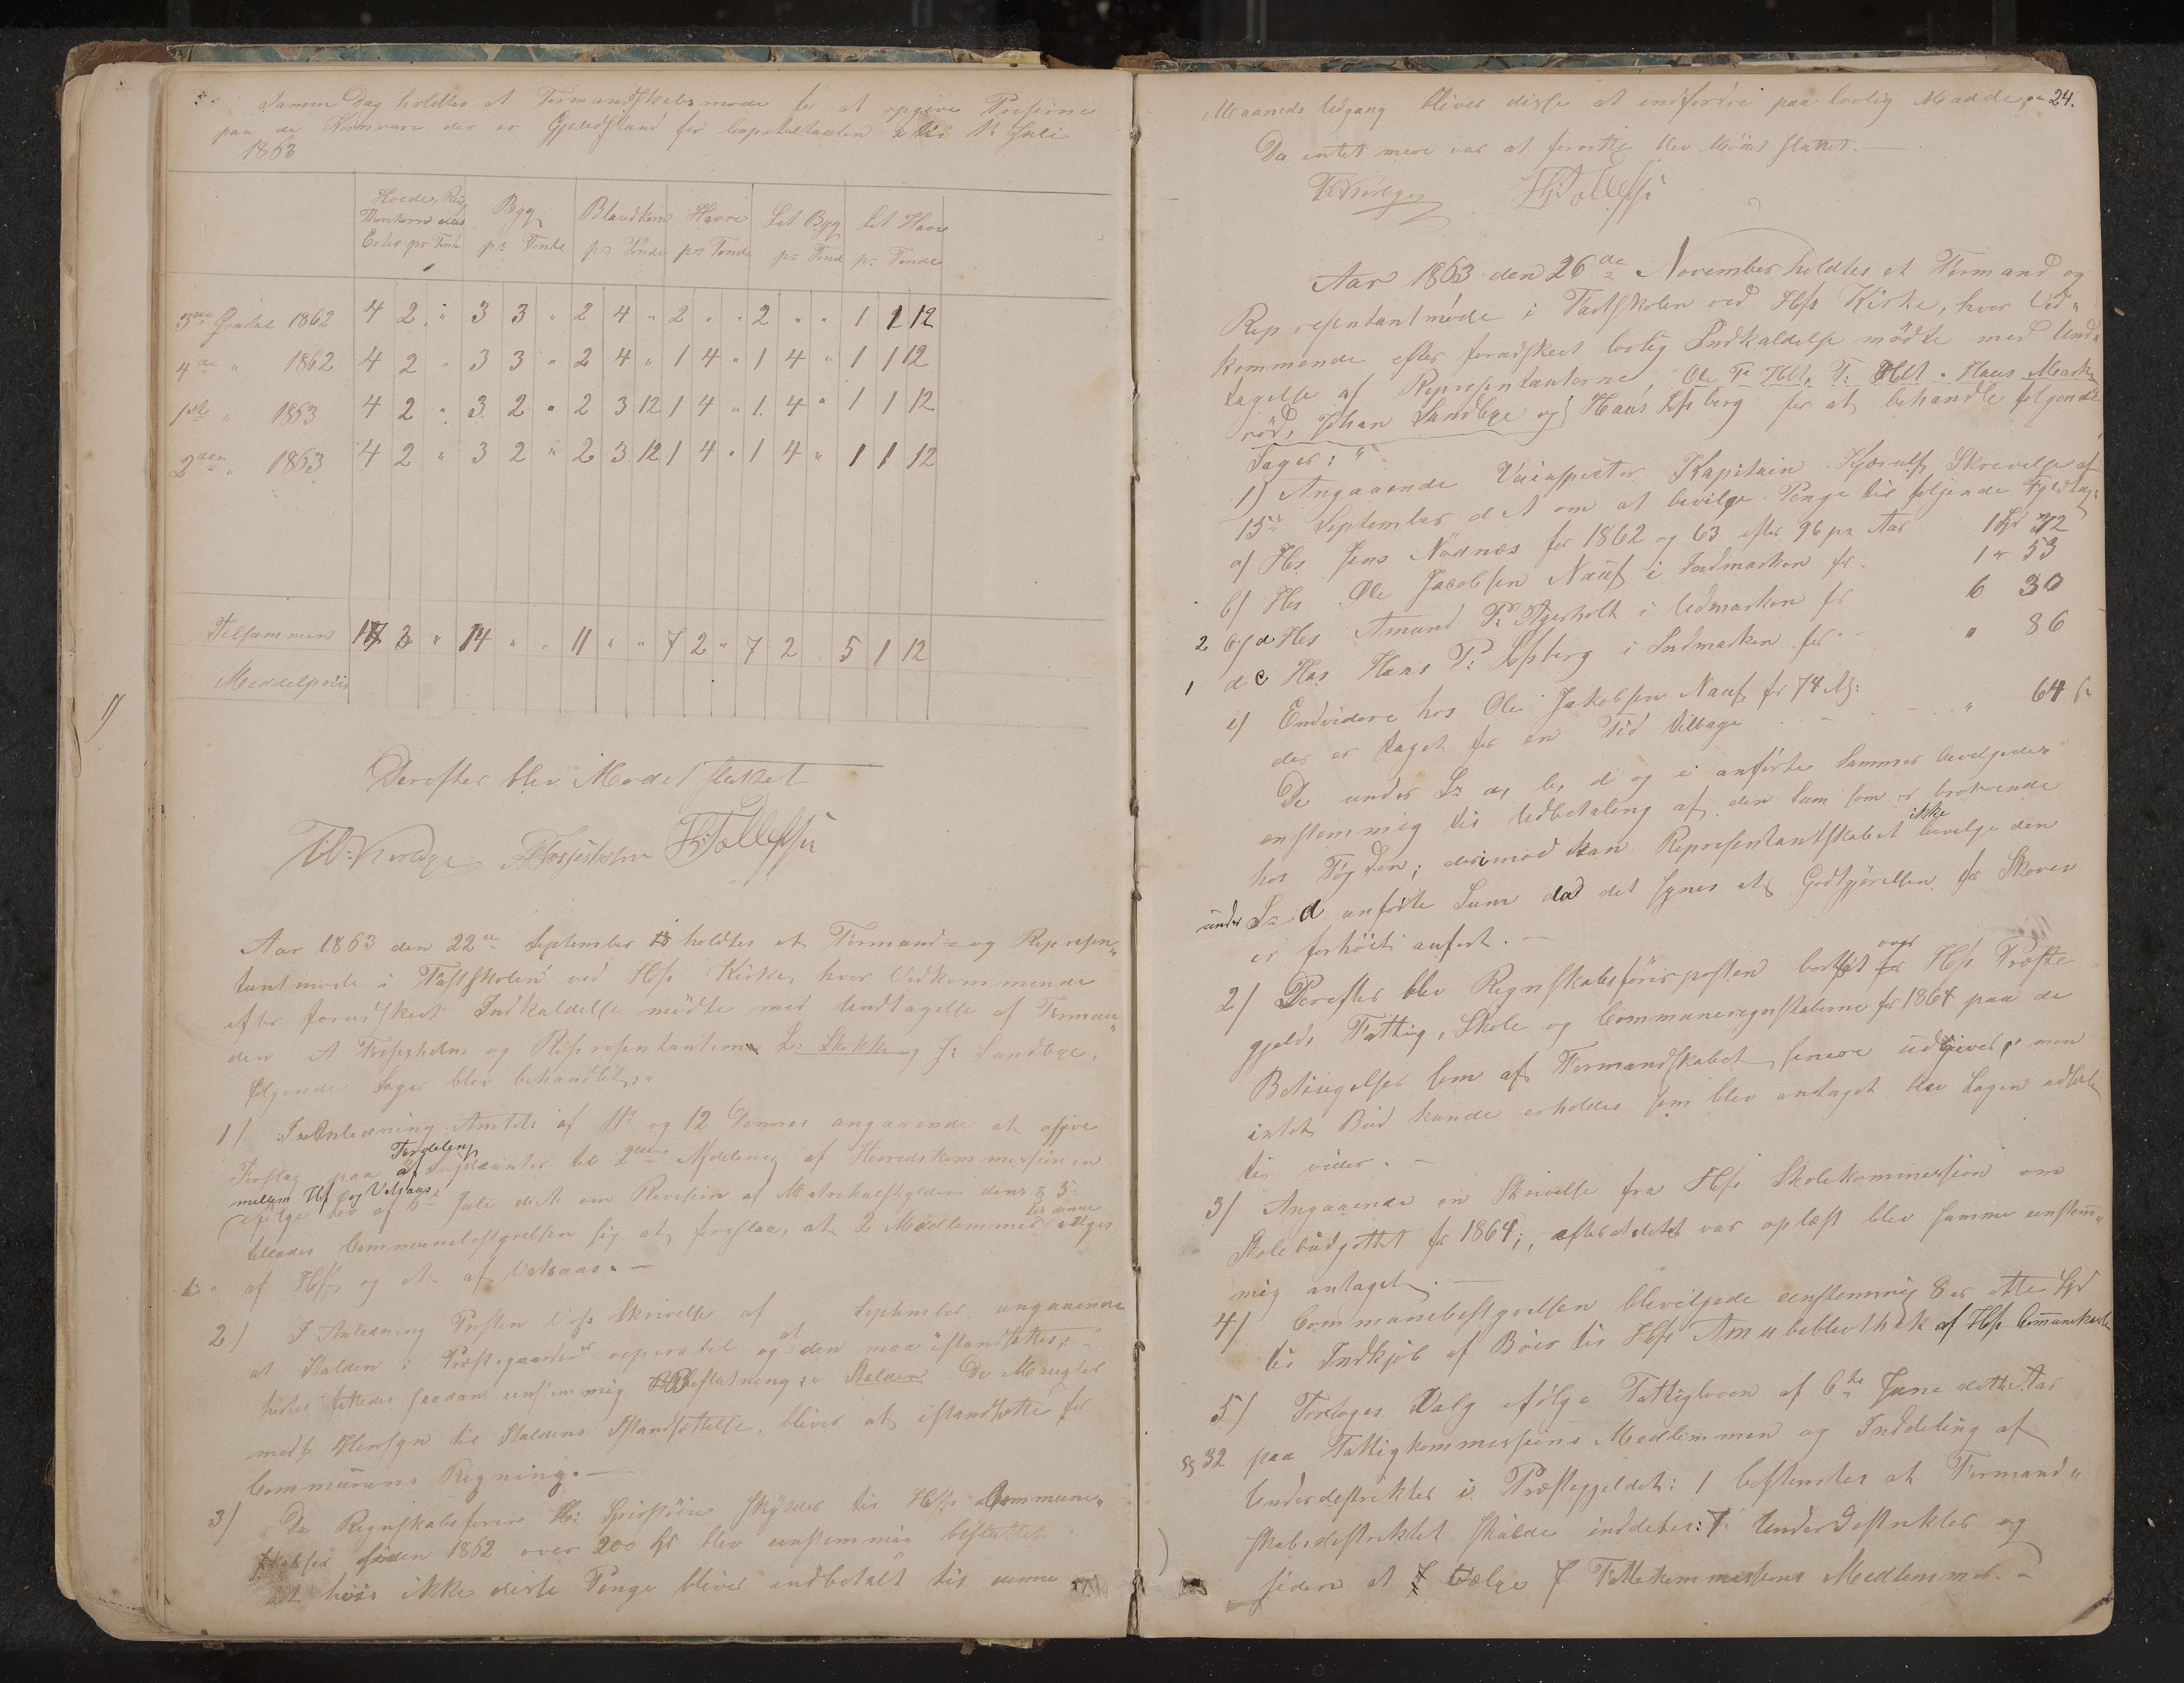 Samme Dag holdtes et Formandskabsmøde for at opgive Priserne
paa de Kornvare der er Gjenstand for Capitaltaxten til 1ste Juli
1863
Hvede, Rug Byg Blandkorn Havre Let Byg Let Havre
Erter pr Tønde pr Tønde pr Tønde pr Tønde pr Tønde pr Tønde
3die Qvatal 1862 4 2 " 3 3 " 2 4 " 2 " " 2 " " 1 1 12
4de " 1862 4 2 " 3 3 " 2 4 " 1 4 " 1 4 " 1 1 12
1ste " 1863 4 2 " 3 2 " 2 3 12 1 4 " 1 4 " 1 1 12
2den " 1863 4 2 " 3 2 " 2 3 12 1 4 " 1 4 " 1 1 12
Tilsammen 17 3 " 14 " " 11 " " 7 2 " 7 2 5 1 12
Meddelpriis
Derefter blev Mødet sluttet
H. Tollefsen
Aar 1863 den 22de September holdtes et Formand- og Repræsen-
tantmøde i Fastskolen ved Hofs Kirke, hvor Vedkommende
efter forudskeet Indkaldelse mødte med Undtagelse af Forman-
den A Fossesholm og Repræsentanterne L: Skokke og J: Sandbye,
følgende Sager blev behandlet:"
1) I Anledning Amtets af 11te og 12 Dennes angaaende at afgive
Forslag paa Fordeling af 2den Afdeling af Herredskommissionen
mellem Hof og Vasaas
ifølge Lov af 6te Juli dette om Revision af Matrikulskylden dens § 5
tillader Communebestyrelsen sig at foreslaa, at 2 Medlemmer til denne vælges
af Hof og et af Vasaas. —
2) I Anledning Presten Skrivelse af September angaaende
at Stalden i Præstegaarden er reparabel og at den maa istandsættes;
fattedes saadan eenstemmig Beslutning:" Stalden De Mangler
med Hensyn til Staldens Istandsættelse, bliver at istandsætte for
Communens Regning. —
3) Da Regnskabsfører skylder til Hofs Commune-
siden 1862 over 200 Spd blev eenstemmig besluttet
at hvis ikke disse Penge bliver indbetalt til denne
Maaneds Udgang bliver disse at indfordre paa lovlig Maade. 24.
Da intet mere var at forrette blev Mødet sluttet. —
H. Tollefsen
Aar 1863 den 26de November holdtes et Formand og
Repræsentantmøde i Fastskolen ved Hofs Kirke, hvor Ved-
kommende efter forudskeet lovlig Indkaldelse mødte med Und-
tagelse af Repræsentanterne, Ole P. Holt, T: Holt. Hans Mærk-
rød, Johan Sandbye og Hans Esberg for at behandle følgende
Sager:"
1) Angaaende Veiinspectør Kapitain Kjærulf Skrivelse af
15de September d A om at bevilge Penge til følgende
a) Hos Jens Nødnæs for 1862 og 63 efter 96 pr Aar 1 Spd 72
b) Hos Ole Jacobsen Nauf i Indmarken for 1 " 53
2 d Hos Amund P. Agerholt i Udmarken for 6 30
1 c Hos Hans P. Esberg i Indmarken for " 86
e) Endvidere hos Ole Jakobsen Nauf for 74 Al: " 64 s
der er taget for en Tid tilbage
De under Lr a, b, d og e anførte Summer bevilgedes
enstemmig til Udbetaling af den Sum som er beroende
hos Fogden; derimod kan Repræsentantskabet ikke bevilge den
under Lr d anførte Sum da det synes at Godtgjørelsen for Skoven
er forhøit anført. —
2) Derefter blev Regnskabsførerposten bortsat over Hofs Præste
gjelds Fattig, Skole og Communeregnskaberne for 1864 paa de
Betingelser som af Formandskabet senere udgives, men
intet Bud kunde erholdes som blev antaget blev Sagen udsat
til videre. —
3) Angaaende en Skrivelse fra Hofs Skolekommission om
Skolebudgettet for 1864; efterat dette var oplæst blev samme eenstem-
mig antaget. —
4) Communebestyrelsen blevilgede eenstemmig 8 er otte Spd
til Indkjøb af Bøier til Hofs Almuebibliothek af Hofs Comunekasse
5) Foretoges Valg ifølge Fattigloven af 6te June dette Aar
§ 32 paa Fattigkommissions Medlemmer og Inddeling af
Underdistrikter i Præstegjeldet: 1 bestemtes at Formand-
skabsdistriktet skulde inddeles: 7 Underdistrikter og
siden at vælge 7 Fattikommissions Medlemmer. —